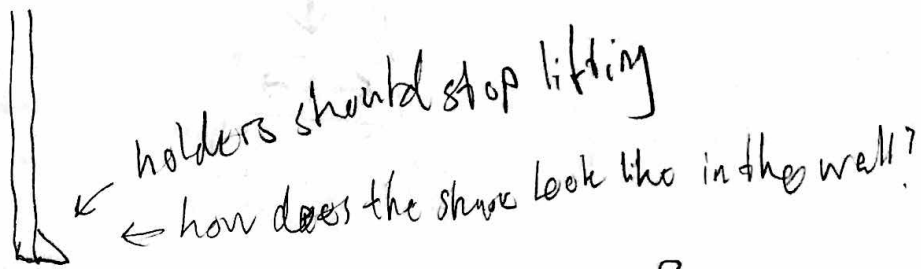 holders should stop lifting
how does the look like in the wall?